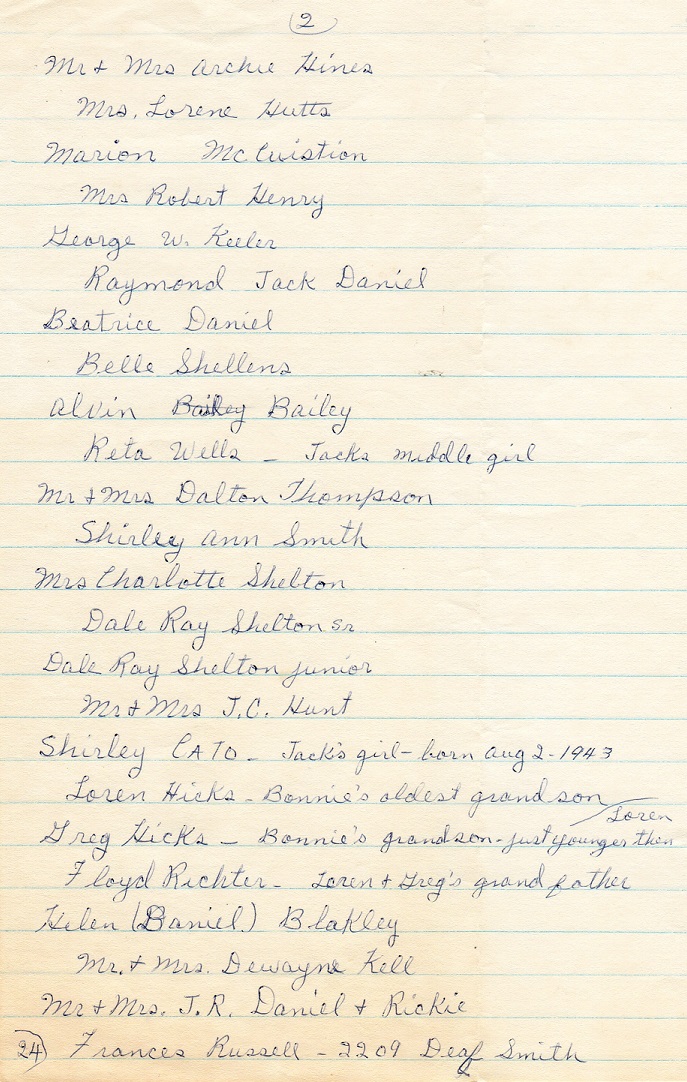 2
Mr & Mrs Archie Hines
Mrs. Lorene Hutts
Marion McCuistion
Mrs Robert Henry
George W. Keeler
Raymond Jack Daniel
Beatrice Daniel
Belle Shellens
Alvin Bailey Bailey
Reta Wells - Jacks middle girl
Mr & Mrs Dalton Thompson
Shirley Ann Smith
Mrs Charlotte Shelton
Dale Ray Shelton Sr
Dale Ray Shelton junior
Mr & Mrs J.C. Hunt
Shirley CATO - Jack's girl - born Aug 2 - 1943
Loren Hicks - Bonnie's oldest grandson
Greg Hicks - Bonnie's grandson - just younger then Loren
Floyd Richter - Loren & Greg's grand father
Helen (Daniel) Blakley
Mr. & Mrs. Dewayne Kell
Mr & Mrs. J.R. Daniel & Rickie
24) Frances Russell - 2209 Deaf Smith